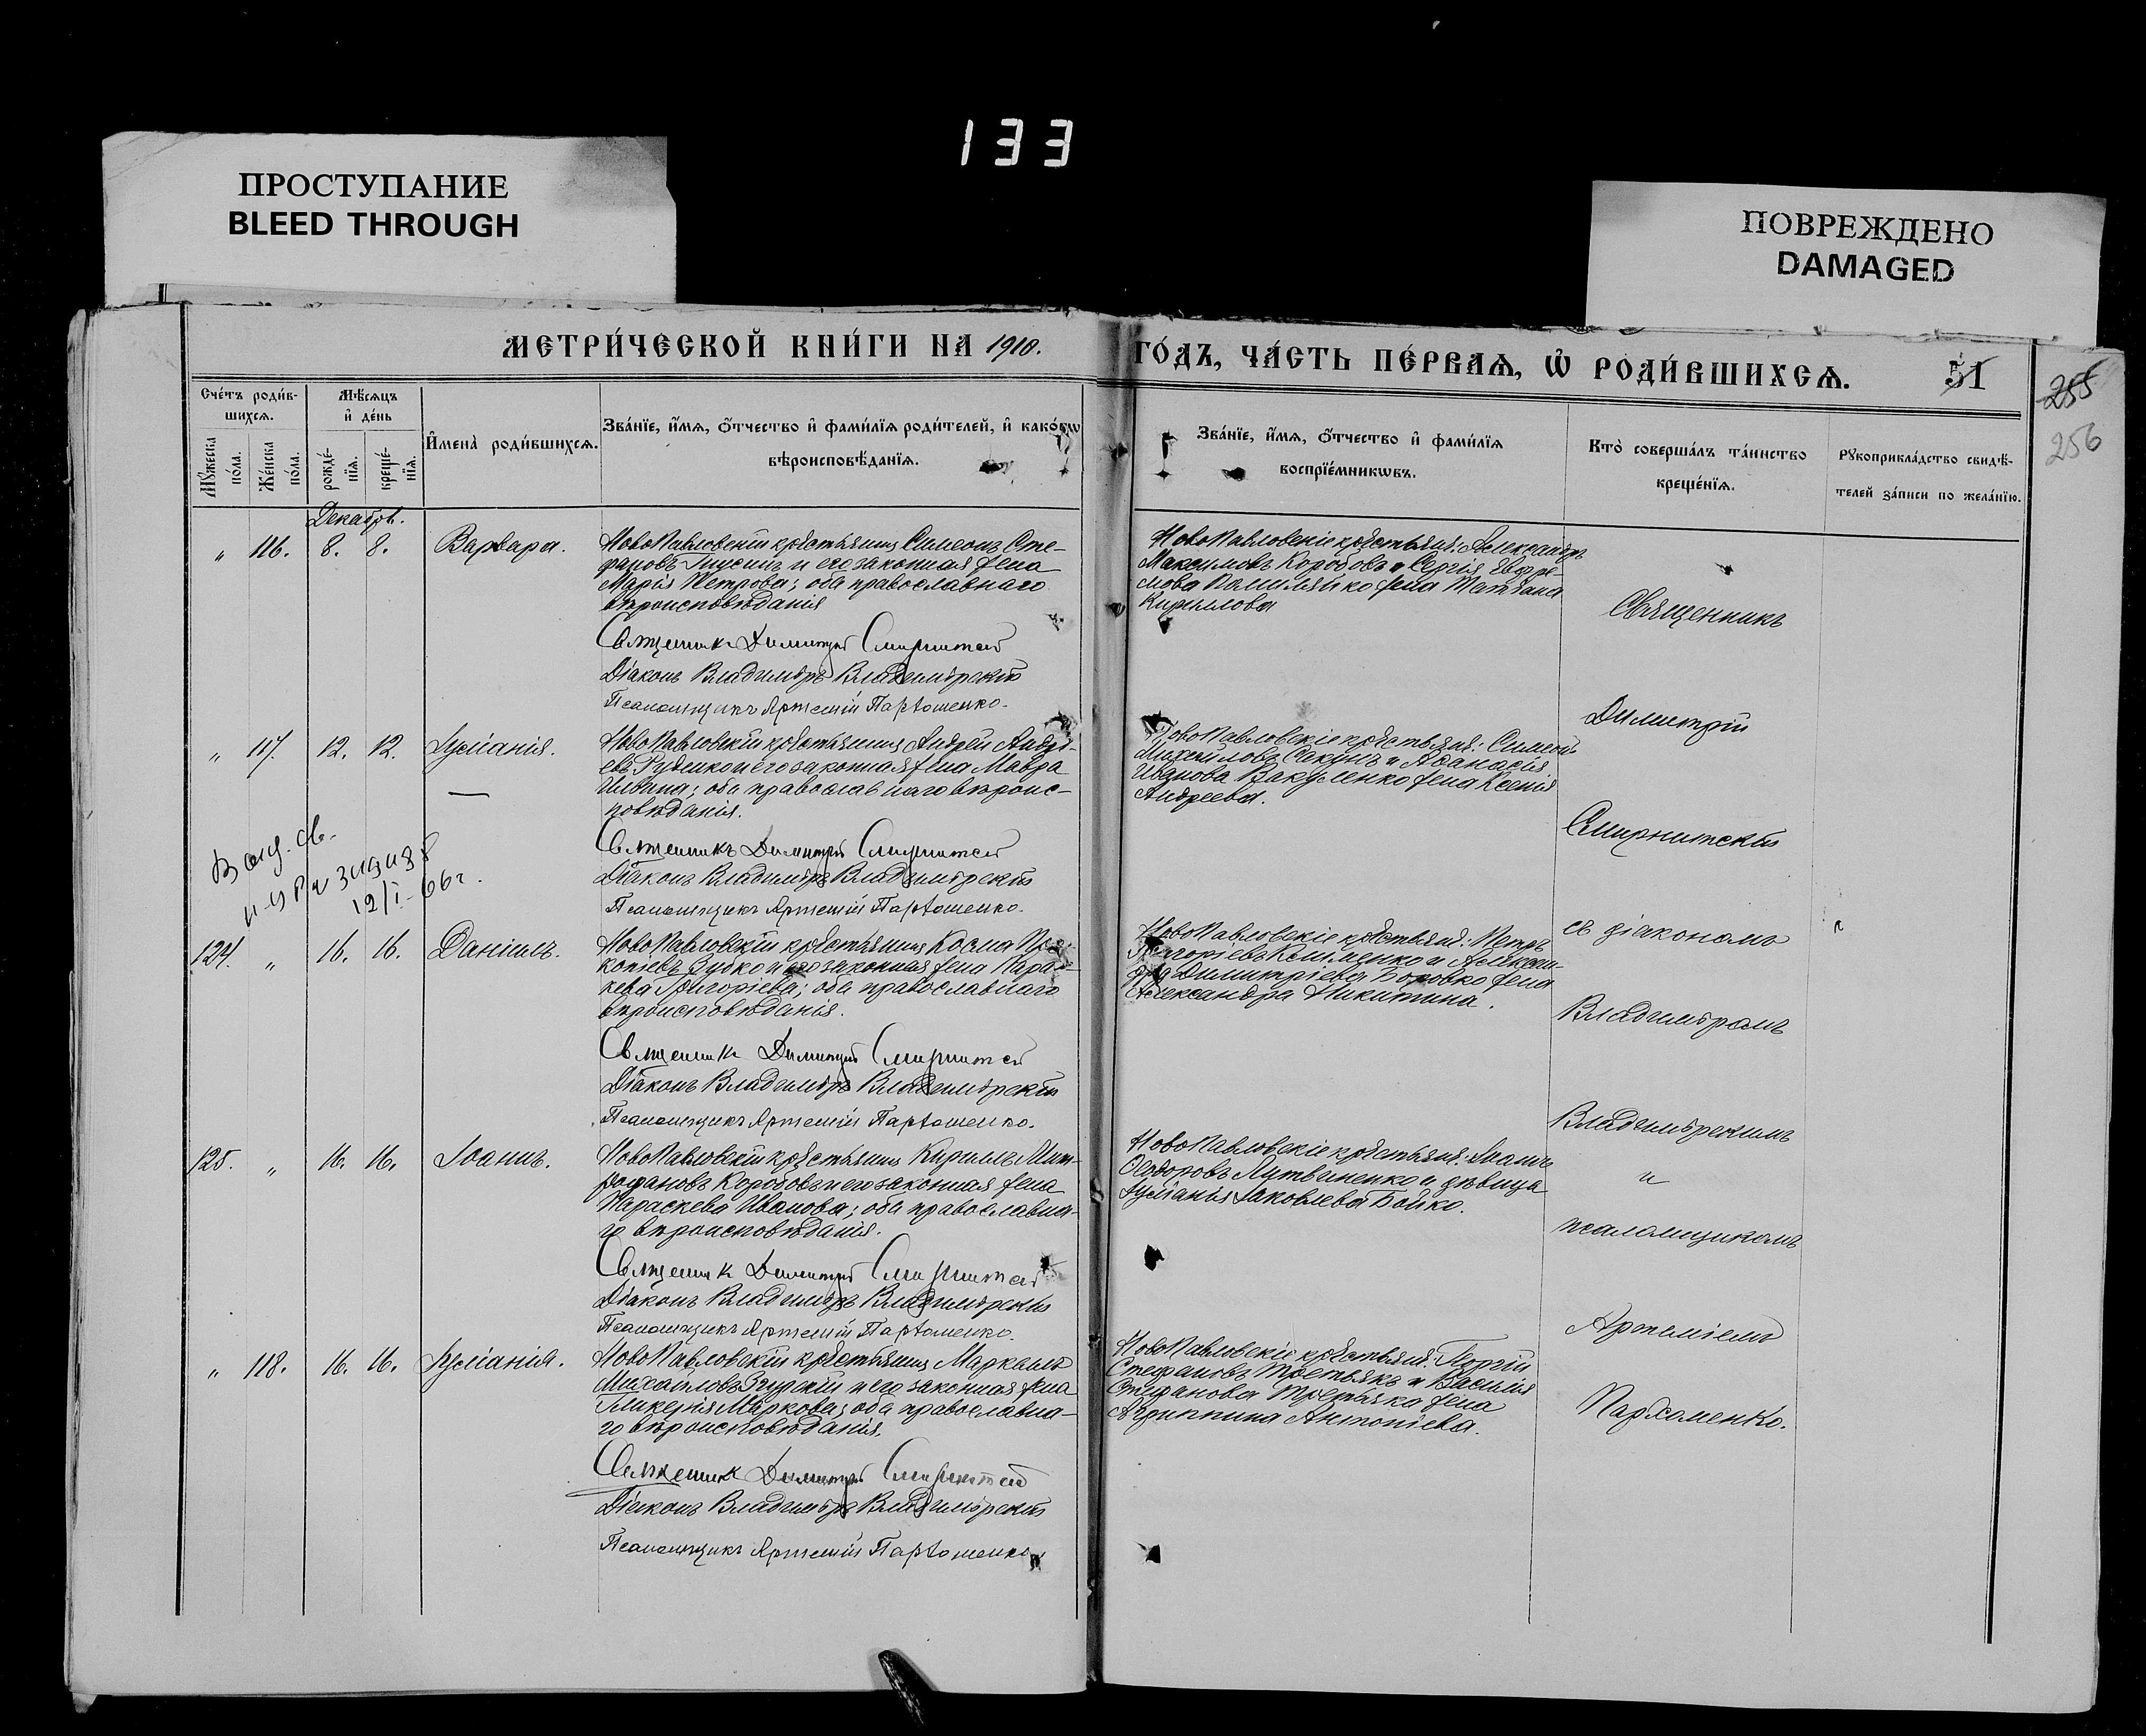 133
ПРОСТУПАНИЕ
BLEED THROUGH
ПОВРЕЖДЕНО
DAMAGED
МЕТРИ́ЧЕСКОЙ КНИ́ГИ НА 1910.
ГО́ДЪ, ЧА́СТЬ ПЕ́РВАѦ, Ѡ҆ РОДИ́ВШИХСѦ.
51
255
256
Сче́тъ роди́в-
шихсѧ.
Мѣ́сѧцъ
и҆ де́нь
Мꙋ́жеска по́ла.
Же́нска по́ла.
рожде́-нїѧ.
креще́-нїѧ.
И҆мена̀ роди́вшихсѧ.
Зва́нїе, и҆́мѧ, ѻ҆́тчество и҆ фами́лїѧ роди́телей, и҆ како́гѡ
вѣроисповѣ́данїѧ.
Зва́нїе, и҆́мѧ, ѻ҆́тчество и҆ фами́лїѧ
воспрїе́мникѡвъ.
Кто̀ соверша́лъ та́инство
креще́нїѧ.
Рꙋкоприкла́дство свидѣ́-
телей за́писи по жела́нїю.
Декабрь.
„ 116. 8. 8. Варвара.
НовоПавловскій крестьянинъ Симеонъ Сте-
фановъ и его законная жена
Марія Петрова; оба православнаго
вѣроисповѣданія
Священникъ Димитрій Смирнитскій
Діаконъ Владиміръ Владимірскій
Псаломщикъ Артемій Пархоменко.
НовоПавловскіе крестьяне: Александръ
Максимовъ Коробовъ и Сергія Евфре-
мова жена Татіана
Кириллова
„ 117. 12. 12. Іуліанія.
НовоПавловскій крестьянинъ Андрей Андре-
евъ Руденко и его законная жена Мавра
оба православнаго вѣроис-
повѣданія.
Священникъ Димитрій Смирнитскій
Діаконъ Владиміръ Владимірскій
Псаломщикъ Артемій Пархоменко.
НовоПавловскіе крестьяне: Симеонъ
Михайловъ и Аѳанасія
Иванова Вакуленко жена Ксенія
Андреева.
Выд. св.
12/I-66г.
124. „ 16. 16. Даніилъ.
НовоПавловскій крестьянинъ Косма Про-
копіевъ Зубко и его законная жена Парас-
кева Григоріева; оба православнаго
вѣроисповѣданія.
Священникъ Димитрій Смирнитскій
Діаконъ Владиміръ Владимірскій
Псаломщикъ Артемій Пархоменко.
НовоПавловскіе крестьяне: Петръ
Григоріевъ Клименко и Алексан-
дра Димитріева Боровко жена
Александра Никитина.
125. „ 16. 16. Іоаннъ.
НовоПавловскій крестьянинъ Кириллъ Мит-
рофановъ Коробовъ и его законная жена
Параскева Иванова; оба православна-
го вѣроисповѣданія.
Священникъ Димитрій Смирнитскій
Діаконъ Владиміръ Владимірскій
Псаломщикъ Артемій Пархоменко.
НовоПавловскіе крестьяне: Іоаннъ
Ѳеодоровъ Литвиненко и дѣвица
Іуліанія Іаковлева Бойко.
„ 118. 16. 16. Іуліанія.
НовоПавловскій крестьянинъ Маркеллъ
Михайловъ и его законная жена
Гликерія Маркова; оба православна-
го вѣроисповѣданія.
Священникъ Димитрій Смирнитскій
Діаконъ Владиміръ Владимірскій
Псаломщикъ Артемій Пархоменко.
НовоПавловскіе крестьяне: Георгій
Стефановъ Третьякъ и Василія
Стефанова Третьяка жена
Агриппина Антоніева.
Священникъ
Димитрій
Смирнитскій
съ діакономъ
Владиміромъ
Владимірскимъ
и
псаломщикомъ
Артеміемъ
Пархоменко.